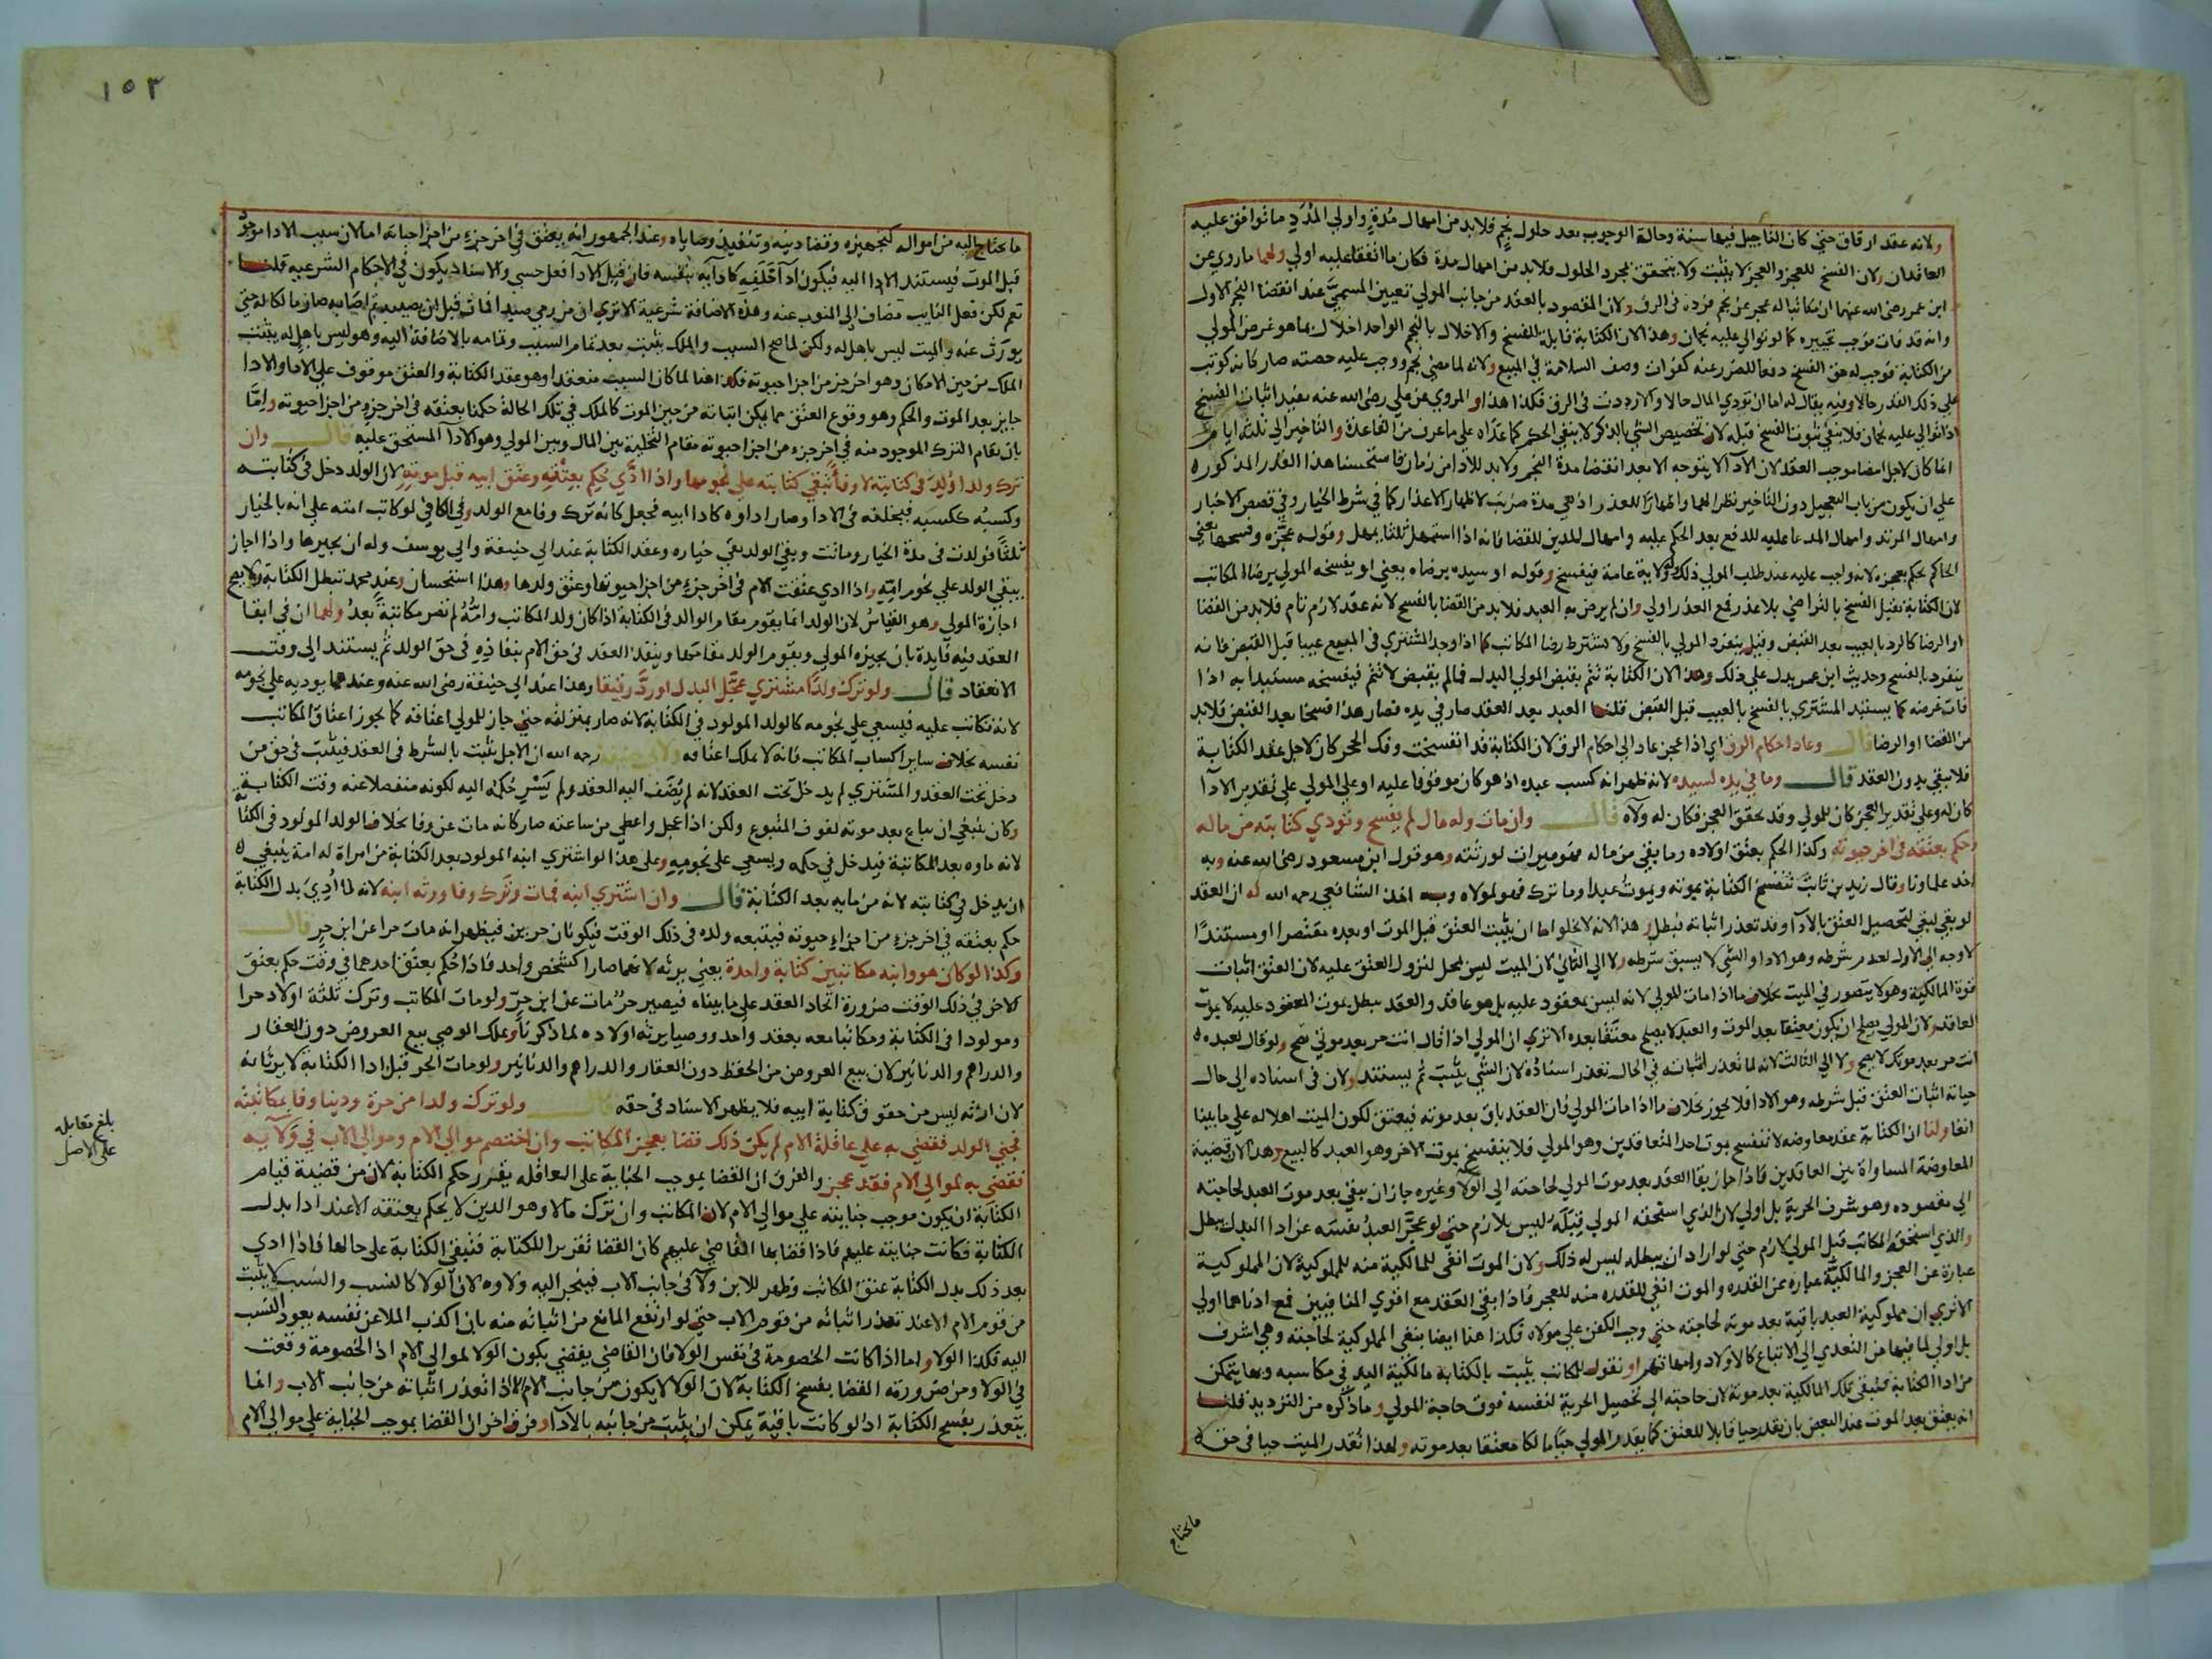 ولانه عقد ارقاق حتي كان التاجيل فيها سنة وحالة الوجوب بعد حلول نجم فلابد من امهال مدة واولي المدد ما توافق عليه
العاقدان ولان الفسخ للعجز والعجز لا يثبت ولا يتحقق بمجرد الحلول فلابد من امهال مدة فكان ما اتفقا عليه اولي ولهما ماروي عن
ابن عمر رضي الله عنهما ان مكاتبا له عجز عن نجم فرده في الرق ولان المقصود بالعقد من جانب المولي تعيين المسمي عند انقضا النجم الاول
وانه قد فات فوجب تخييره كما لو توالي عليه نجمان وهذا لان الكتابة قابلة للفسخ والاخلال بالنجم الواحد اخلال بما هو غرض المولي
من الكتابة فوجب له حق الفسخ دفعا للضرر عنه كفوات وصف السلامة في المبيع ولانه لما مضي نجم ووجب عليه حصته صار كانه كوتب
علي ذلك القدر حالا وفيه يقال له اما ان تودي المال حالا والا رددت في الرق فكذا هذا والمروي عن علي رضي الله عنه يفيد اثبات الفسخ
اذا توالي عليه نجمان فلا ينفي ثبوت الفسخ قبله لان تخصيص الشي بالذكر لا ينفي الحكم عما عداه علي ما عرف من القاعدة والتاخير الي ثلثة ايام
انما كان لاجل امضا موجب العقد لان الاداء لا يتوجه الا بعد انقضا مدة النجم ولا بد للادا من زمان فاستحسنا هذا القدر المذكوره
علي ان يكون من باب التعجيل دون التاخير نظرا لهما واظهارا للعذر اذ هي مدة ضربت لاظهار الاعذار كما في شرط الخيار وفي قصص الاخبار
وامهال المرتد وامهال المدعا عليه للدفع بعد الحكم عليه وامهال المدين للقضا فانه اذا استمهل ثلثا يمهل وقوله عجزه وفسخها يعني
الحاكم يحكم بعجزه لانه واجب عليه عند طلب المولي ذلك ولاية عامة فيفسخ وقوله او سيده برضاه يعني او يفسخه المولي برضا المكاتب
لان الكتابة تقبل الفسخ بالتراضي بلا عذر فمع العذر اولي وان لم يرض به العبد فلابد من القضا بالفسخ لانه عقد لازم تام فلابد من القضا
او الرضا كالرد بالعيب بعد القبض وقيل ينفرد المولي بالفسخ ولا تشترط رضا المكاتب كما اذا وجد المشتري في المبيع عيبا قبل القبض فانه
ينفرد بالفسخ وحديث ابن عمر يدل علي ذلك وهذا لان الكتابة تتم بقبض المولي البدل فما لم يقبض لا تتم فيفسخه مستبدا به اذا
فات غرضه كما يستبد المشتري بالفسخ بالعيب قبل القبض قلنا العبد بعد العقد صار في يده فصار هذا فسخا بعد القبض فلابد
من القضا او الرضا قال وعاد احكام الرق اي اذا عجز عاد الي احكام الرق لان الكتابة قد انفسخت وفك الحجر كان لاجل عقد الكتابة
فلا يبقي بدون العقد قال وما في يده لسيده لانه ظهر انه كسب عبده اذ هو كان موقوفا عليه او علي المولي علي تقدير الادا
كان له وعلي تقدير العجز كان للمولي وقد تحقق العجز فكان له ولاه قال وان مات وله مال لم يفسخ وتودي كتابته من ماله
وحكم بعتقه في اخر حيوته وكذا الحكم بعتق اولاده وما بقي من ماله فهو ميراث لورثته وهو قول ابن مسعود رضي الله عنه وبه
اخذ علماونا وقال زيد بن ثابت تنفسخ الكتابة بموته ويموت عبدا وما ترك فهو لمولاه وبه اخذ الشافعي رحمه الله له ان العقد
لو بقي لبقي لتحصيل العتق بالادا وقد تعذر اثباته فبطل وهذا لانه لا يخلو اما ان يثبت العتق قبل الموت او بعده مقتصرا او مستندا
لا وجه الي الاول لعدم شرطه وهو الادا والشي لا يسبق شرطه ولا الي الثاني لان الميت ليس بمحل لنزول العتق عليه لان العتق اثبات
قوة المالكية وهو لا يتصور في الميت بخلاف ما اذا مات المولي لانه ليس بمعقود عليه بل هو عاقد والعقد يبطل بموت المعقود عليه لا بموت
العاقد ولان المولي يصلح ان يكون معتقا بعد الموت والعبد لا يصلح معتقا بعده الا تري ان المولي اذا قال انت حر بعد موتي صح ولو قال لعبده
انت حر بعد موتك لا يصح ولا الي الثالث لانه لما تعذر اثباته في الحال تعذر استناده لان الشي يثبت ثم يستند ولان في اسناده الي حال
حياته اثبات العتق قبل شرطه وهو الادا فلا يجوز بخلاف ما اذا مات المولي فان العقد باق بعد موته فيعتق لكون الميت اهلا له علي ما بينا
انفا ولنا ان الكتابة عقد معاوضه لا تنفسخ بموت احد المتعاقدين وهو المولي فلا ينفسخ بموت الاخر وهو العبد كالبيع وهذا لان قضية
المعاوضة المساواة بين العاقدين فاذا جاز بقا العقد بعد موت المولي لحاجته الي الولا وغيره جاز ان يبقي بعد موت العبد لحاجته
الي مقصوده وهو شرف الحرية بل اولي لان الذي استحقه المولي قبله ليس بلازم حتي لو عجز العبد نفسه عن ادا البدل يبطل
والذي استحقه المكاتب قبل المولي لازم حتي لو اراد ان يبطله ليس له ذلك ولان الموت انفي للمالكية منه للمملوكية لان المملوكية
عبارة عن العجز والمالكية عباره عن القدره والموت انفي للقدره منه للعجز فاذا بقي العقد مع اقوي المنافيين فمع ادناهما اولي
الا تري ان مملوكية العبد باقية بعد موته لحاجته حتي وجب الكفن علي مولاه فكذا هنا ايضا تبقي المملوكية لحاجته وهي اشرف
بل اولي لما فيها من التعدي الي الاتباع كالاولاد وامهاتهم او نقول للمكاتب يثبت بالكتابة مالكية اليد في مكاسبه وبها يتمكن
من ادا الكتابة فتبقي تلك المالكية بعد موته لان حاجته الي تحصيل الحرية لنفسه فوق حاجة المولي وما ذكره من الترديد قلنا
انه يعتق بعد الموت عند البعض بان يقدر حيا قابلا للعتق كما يقدر المولي حيا مالكا معتقا بعد موته ولهذا تقدر الميت حيا في حق
ما يحتاج
١٥٣
ما يحتاج اليه من امواله كتجهيزه وقضا دينه وتنفيذ وصاياه وعند الجمهور انه يعتق في اخر جزء من اجزا حياته اما لان سبب الادا موجود
قبل الموت فيستند الادا اليه فيكون ادا خلفه كادايه بنفسه فان قيل الادا فعل حسي والاسناد يكون في الاحكام الشرعيه قلنا
نعم لكن فعل النايب مضاف الي المنوب عنه وهذه الاضافة شرعية الا تري ان من رمي صيدا فمات قبل ان يصيبه ثم اصابه صار مالكا له حتي
يورث عنه والميت ليس باهل له ولكن لما صح السبب والملك يثبت بعد تمام السبب وتمامه بالاضافة اليه وهو ليس باهل له يثبت
الملك من حين الامكان وهو اخر جزء من اجزا حيوته فكذا هنا لما كان السبب منعقدا وهو عقد الكتابة والعتق موقوف علي الادا والادا
جايز بعد الموت والحكم وهو وقوع العتق مما يمكن اثباته من حين الموت كالملك في تلك الحالة حكمنا بعتقه في اخر جزء من اجزا حيوته واما
بان يقام الترك الموجود منه في اخر جزء من اجزا حيوته مقام التخلية بين المال وبين المولي وهو الادا المستحق عليه قال وان
ترك ولدا ولد في كتابته لا وفا تبقي كتابته علي نجومها واذا ادي حكم بعتقه وعتق ابيه قبل موته لان الولد دخل في كتابته
وكسبه ككسبه فيخلفه في الادا وصار اداوه كادا ابيه فجعل كانه ترك وفا مع الولد وفي الكافي لو كاتب امته علي انه بالخيار
ثلثا فولدت في مدة الخيار وماتت وبقي الولد بقي خياره وعقد الكتابة عند ابي حنيفة وابي يوسف وله ان يجيزها واذا اجاز
يبقي الولد علي نجوم امه واذا ادي عتقت الام في اخر جزء من اجزا حيوتها وعتق ولدها وهذا استحسان وعند محمد تبطل الكتابة ولا يصح
اجازة المولي وهو القياس لان الولد انما يقوم مقام الوالد في الكتابة اذا كان ولد المكاتب وامه لم تصر مكاتبة بعد ولهما ان في ابقا
العقد فيه فايدة بان يجيزه المولي ويقوم الولد مقامها وينفذ العقد في حق الام بنفاذه في حق الولد ثم يستند الي وقت
الانعقاد قال ولو ترك ولدا مشتري عجل البدل او رد رقيقا وهذا عند ابي حنيفة رضي الله عنه وعندهما يوديه علي نجومه
لانه تكاتب عليه فيسعي علي نجومه كالولد المولود في الكتابة لانه صار بمنزلته حتي جاز للمولي اعتاقه كما يجوز اعتاق المكاتب
نفسه بخلاف ساير اكساب المكاتب فانه لا يملك اعتاقه ولابي حنيفة رحمه الله ان الاجل يثبت بالشرط في العقد فيثبت في حق من
دخل تحت العقد والمشتري لم يدخل تحت العقد لانه لم يضف اليه العقد ولم يسر حكمه اليه لكونه منفصلا عنه وقت الكتابة
وكان ينبغي ان يباع بعد موته لفوت المتبوع ولكن اذا عجل واعطي من ساعته صار كانه مات عن وفا بخلاف الولد المولود في الكتابة
لانه ماوه بعد المكاتبة فيدخل في حكمه ويسعي علي نجومه وعلي هذا لو اشتري ابنه المولود بعد الكتابة من امراة له امة ينبغي
ان يدخل في كتابته لانه من مايه بعد الكتابة قال وان اشتري ابنه فمات وترك وفا ورثه ابنه لانه لما ادي بدل الكتابة
حكم بعتقه في اخر جزء من اجزاء حيوته فيتبعه ولده في ذلك الوقت فيكونان حرين فيظهر انه مات حرا عن ابن حر قال
وكذا لو كان هو وابنه مكاتبين كتابة واحدة يعني يرثه لانهما صارا كشخص واحد فاذا حكم بعتق احدهما في وقت حكم بعتق
الاخر في ذلك الوقت ضرورة اتحاد العقد علي ما بيناه فيصير حر مات عن ابن حر ولو مات المكاتب وترك ثلثة اولاد حرا
ومولودا في الكتابة ومكاتبا معه بعقد واحد ووصيا يرثه اولاده لما ذكرنا ويملك الوصي بيع العروض دون العقار
والدراهم والدنانير لان بيع العروض من الحفظ دون العقار والدراهم والدنانير ولو مات الحر قبل ادا الكتابة لا يرثانه
لان ارثه ليس من حقوق كتابة ابيه فلا يظهر الاستناد في حقه قال ولو ترك ولدا من حرة ودينا وفا بمكاتبته
فجني الولد فقضي به علي عاقلة الام لم يكن ذلك قضا بعجز المكاتب وان اختصم موالي الام وموالي الاب في ولايه
فقضي به لموالي الام فقد عجز والفرق ان القضا بموجب الجناية علي العاقله يقرر حكم الكتابة لان من قضية قيام
الكتابة ان يكون موجب جنايته علي موالي الام لان المكاتب وان ترك مالا وهو الدين لا يحكم بعتقه الا عند ادا بدل
الكتابة فكانت جنايته عليهم فاذا قضا بها القاضي عليهم كان القضا تقريرا للكتابة فتبقي الكتابة علي حالها فاذا ادي
بعد ذلك بدل الكتابة عتق المكاتب وظهر للابن ولاء في جانب الاب فينجر اليه ولاوه لان الولا كالنسب والنسب لا يثبت
من قوم الام الا عند تعذر اثباته من قوم الاب حتي لو ارتفع المانع من اثباته منه بان اكذب الملاعن نفسه يعود النسب
اليه فكذا الولا واما اذا كانت الخصومة في نفس الولا فان القاضي يقضي بكون الولا لموالي الام اذ الخصومة وقعت
في الولا ومن ضرورة القضا بفسخ الكتابة لان الولا لا يكون من جانب الام الا اذا تعذر اثباته من جانب الاب وانما
يتعذر بفسخ الكتابة اذ لو كانت باقية يمكن ان يثبت من جانبه بالادا وفرق اخر ان القضا بموجب الجناية علي موالي الام
بلغ مقابله
علي الاصل